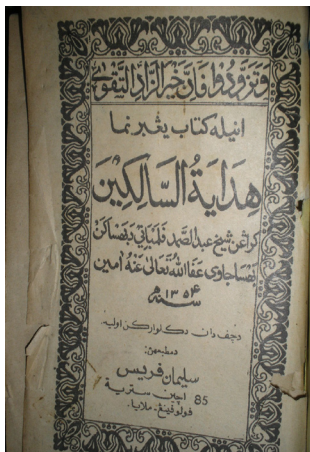 وَتَزَوَّدُوا فَإِنَّ خَيْرَ الزَّادِ التَّقْوَىٰ
اينيله كتاب يڠبرنما
هِدَايَةُ السَّالِكِينَ
كارڠن شيخ عبد الصمد فلمباني دبهساكن
بهسا جاوي عَفَا اللهُ تَعَالَىٰ عَنْهُ امين
سنة ١٣٥٤
دچيتق دان دكلواركن اوليه
دمطبعهڽ
سليمان فريس
85 اچين ستريت
فولوفينڠ - ملايا.